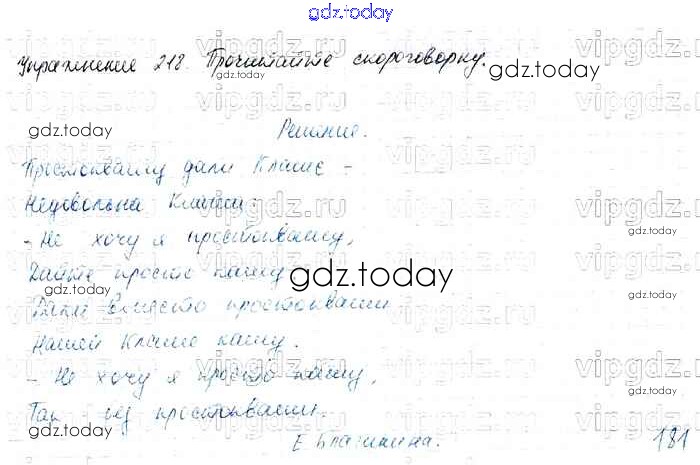 gdz.today
Упражнение 218. Прочитайте скороговорку.
gdz.today
gdz.today
Решение.
Простоквашу дали Клаше –
Недовольна Клаша:
- Не хочу я простоквашу,
Дайте просто кашу.
gdz.today
Дали вместо простокваши
Нашей Клаше кашу.
- Не хочу я просто кашу,
Так без простокваши.
gdz.today
gdz.today
Е. Благинина.
181
vipgdz.ru